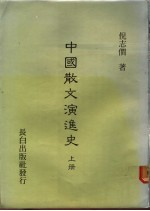 侯志僩 著
中國散文演進史 上册
長白出版社發行